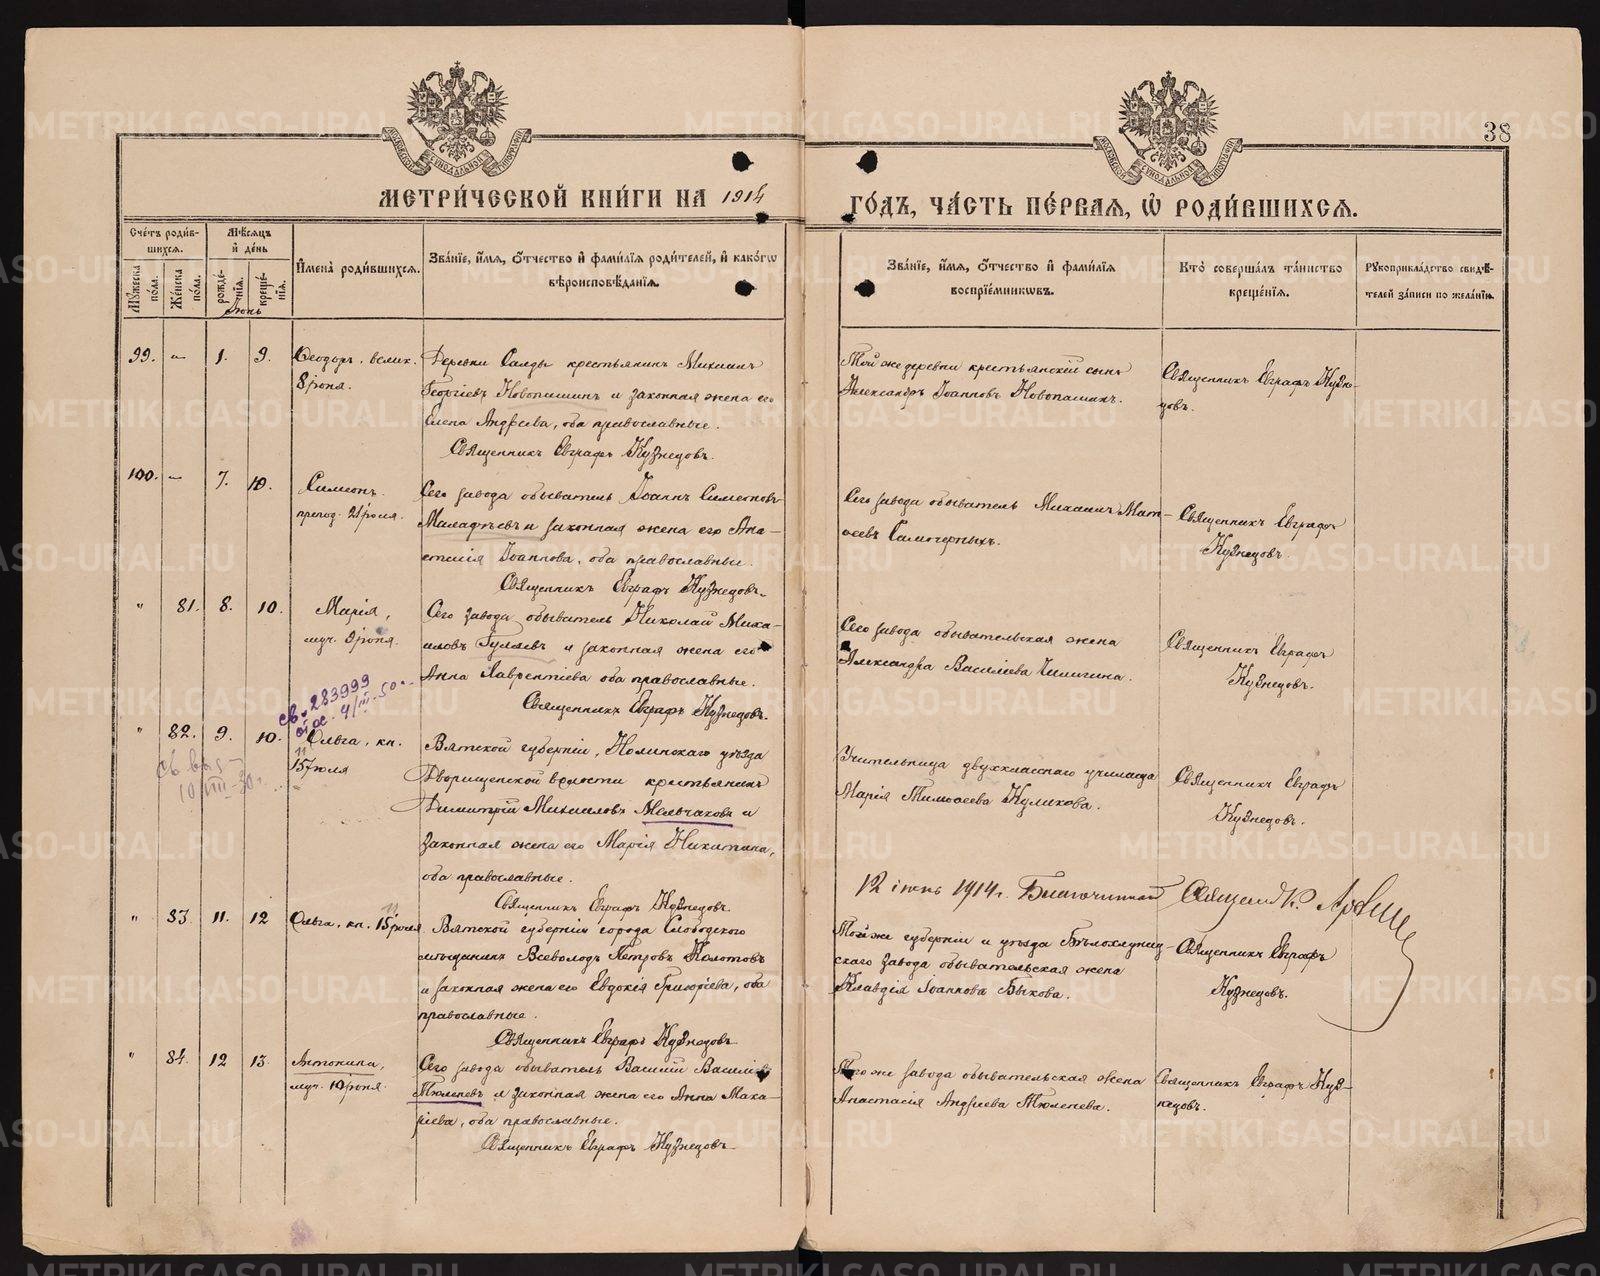 38
МЕТРИ́ЧЕСКОЙ КНИ́ГИ НА 1914
ГО́ДЪ, ЧА́СТЬ ПЕ́РВАЯ, Ѡ҆ РОДИ́ВШИХСЯ.
Сче́тъ роди́в-
шихся.
Му́жеска по́ла.
Же́нска по́ла.
Мѣ́сяцъ
и҆ де́нь
рожде́-
нія.
креще́-
нія.
Іюнь
И҆мена̀ роди́вшихся.
Зва́нїе, и҆́мя, ѻ҆́тчество и҆ фами́лїя роди́телей, и҆ како́гѡ
вѣроисповѣ́данїя.
Зва́нїе, и҆́мя, ѻ҆́тчество и҆ фами́лїя
воспрїе́мникѡвъ.
Кто̀ соверша́лъ та́инство
креще́нїя.
Рꙋкоприкла́дство свидѣ́-
телей за́писи по жела́нїю.
99. — 1. 9.
Ѳеодоръ, велик.
8 іюня.
Деревни Салды крестьянинъ Михаилъ
Георгіевъ Новопашинъ и законная жена его
Елена Андреева, оба православные.
Священникъ Евграфъ Кузнецовъ.
Той же деревни крестьянскій сынъ
Александръ Іоанновъ Новопашинъ.
Священникъ Евграфъ Кузне-
цовъ.
100. — 7. 10.
Симеонъ.
препод. 21 іюля.
Сего завода обыватель Іоаннъ Симеоновъ
Малафѣевъ и законная жена его Ана-
стасія Іоаннова, оба православные.
Священникъ Евграфъ Кузнецовъ.
Сего завода обыватель Михаилъ Мат-
ѳеевъ Самочерныхъ.
Священникъ Евграфъ
Кузнецовъ.
" 81. 8. 10.
Марія,
муч. 9 іюня.
Сего завода обыватель Николай Миха-
иловъ Гуляевъ и законная жена его
Анна Лаврентіева оба православные.
Священникъ Евграфъ Кузнецовъ.
Сего завода обывательская жена
Александра Василіева Чишгина.
Священникъ Евграфъ
Кузнецовъ.
св. 283999
от 4/III-50
" 82. 9. 10.
Ольга, кн.
11
15 Іюля
Св выд
10/VIII-30 г.
Вятской губерніи, Нолинскаго уѣзда
Дворищенской волости крестьянинъ
Димитрій Михаиловъ Мельчаковъ и
законная жена его Марія Никитина,
оба православные.
Священникъ Евграфъ Кузнецовъ.
Учительница двухкласснаго училища
Марія Тимоѳеева Куликова.
Священникъ Евграфъ
Кузнецовъ.
12 іюнь 1914 г. Благочинный Священ.
" 83. 11. 12
Ольга, кн. 15 іюля
11
Вятской губерніи города Слободского
мѣщанинъ Всеволодъ Петровъ Колотовъ
и законная жена его Евдокія Григоріева, оба
православные.
Священникъ Евграфъ Кузнецовъ
Той же губерніи и уѣзда Бѣлохолуниц-
скаго завода обывательская жена
Клавдія Іоаннова Быкова.
Священникъ Евграфъ
Кузнецовъ.
" 84. 12 13.
Антонина,
муч. 10 іюня.
Сего завода обыватель Василій Василіевъ
Тюленевъ и законная жена его Анна Мака-
ріева, оба православные.
Священникъ Евграфъ Кузнецовъ
Того же завода обывательская жена
Анастасія Андреева Тюленева.
Священникъ Евграфъ Куз-
нецовъ.
METRIKI.GASO-URAL.RU